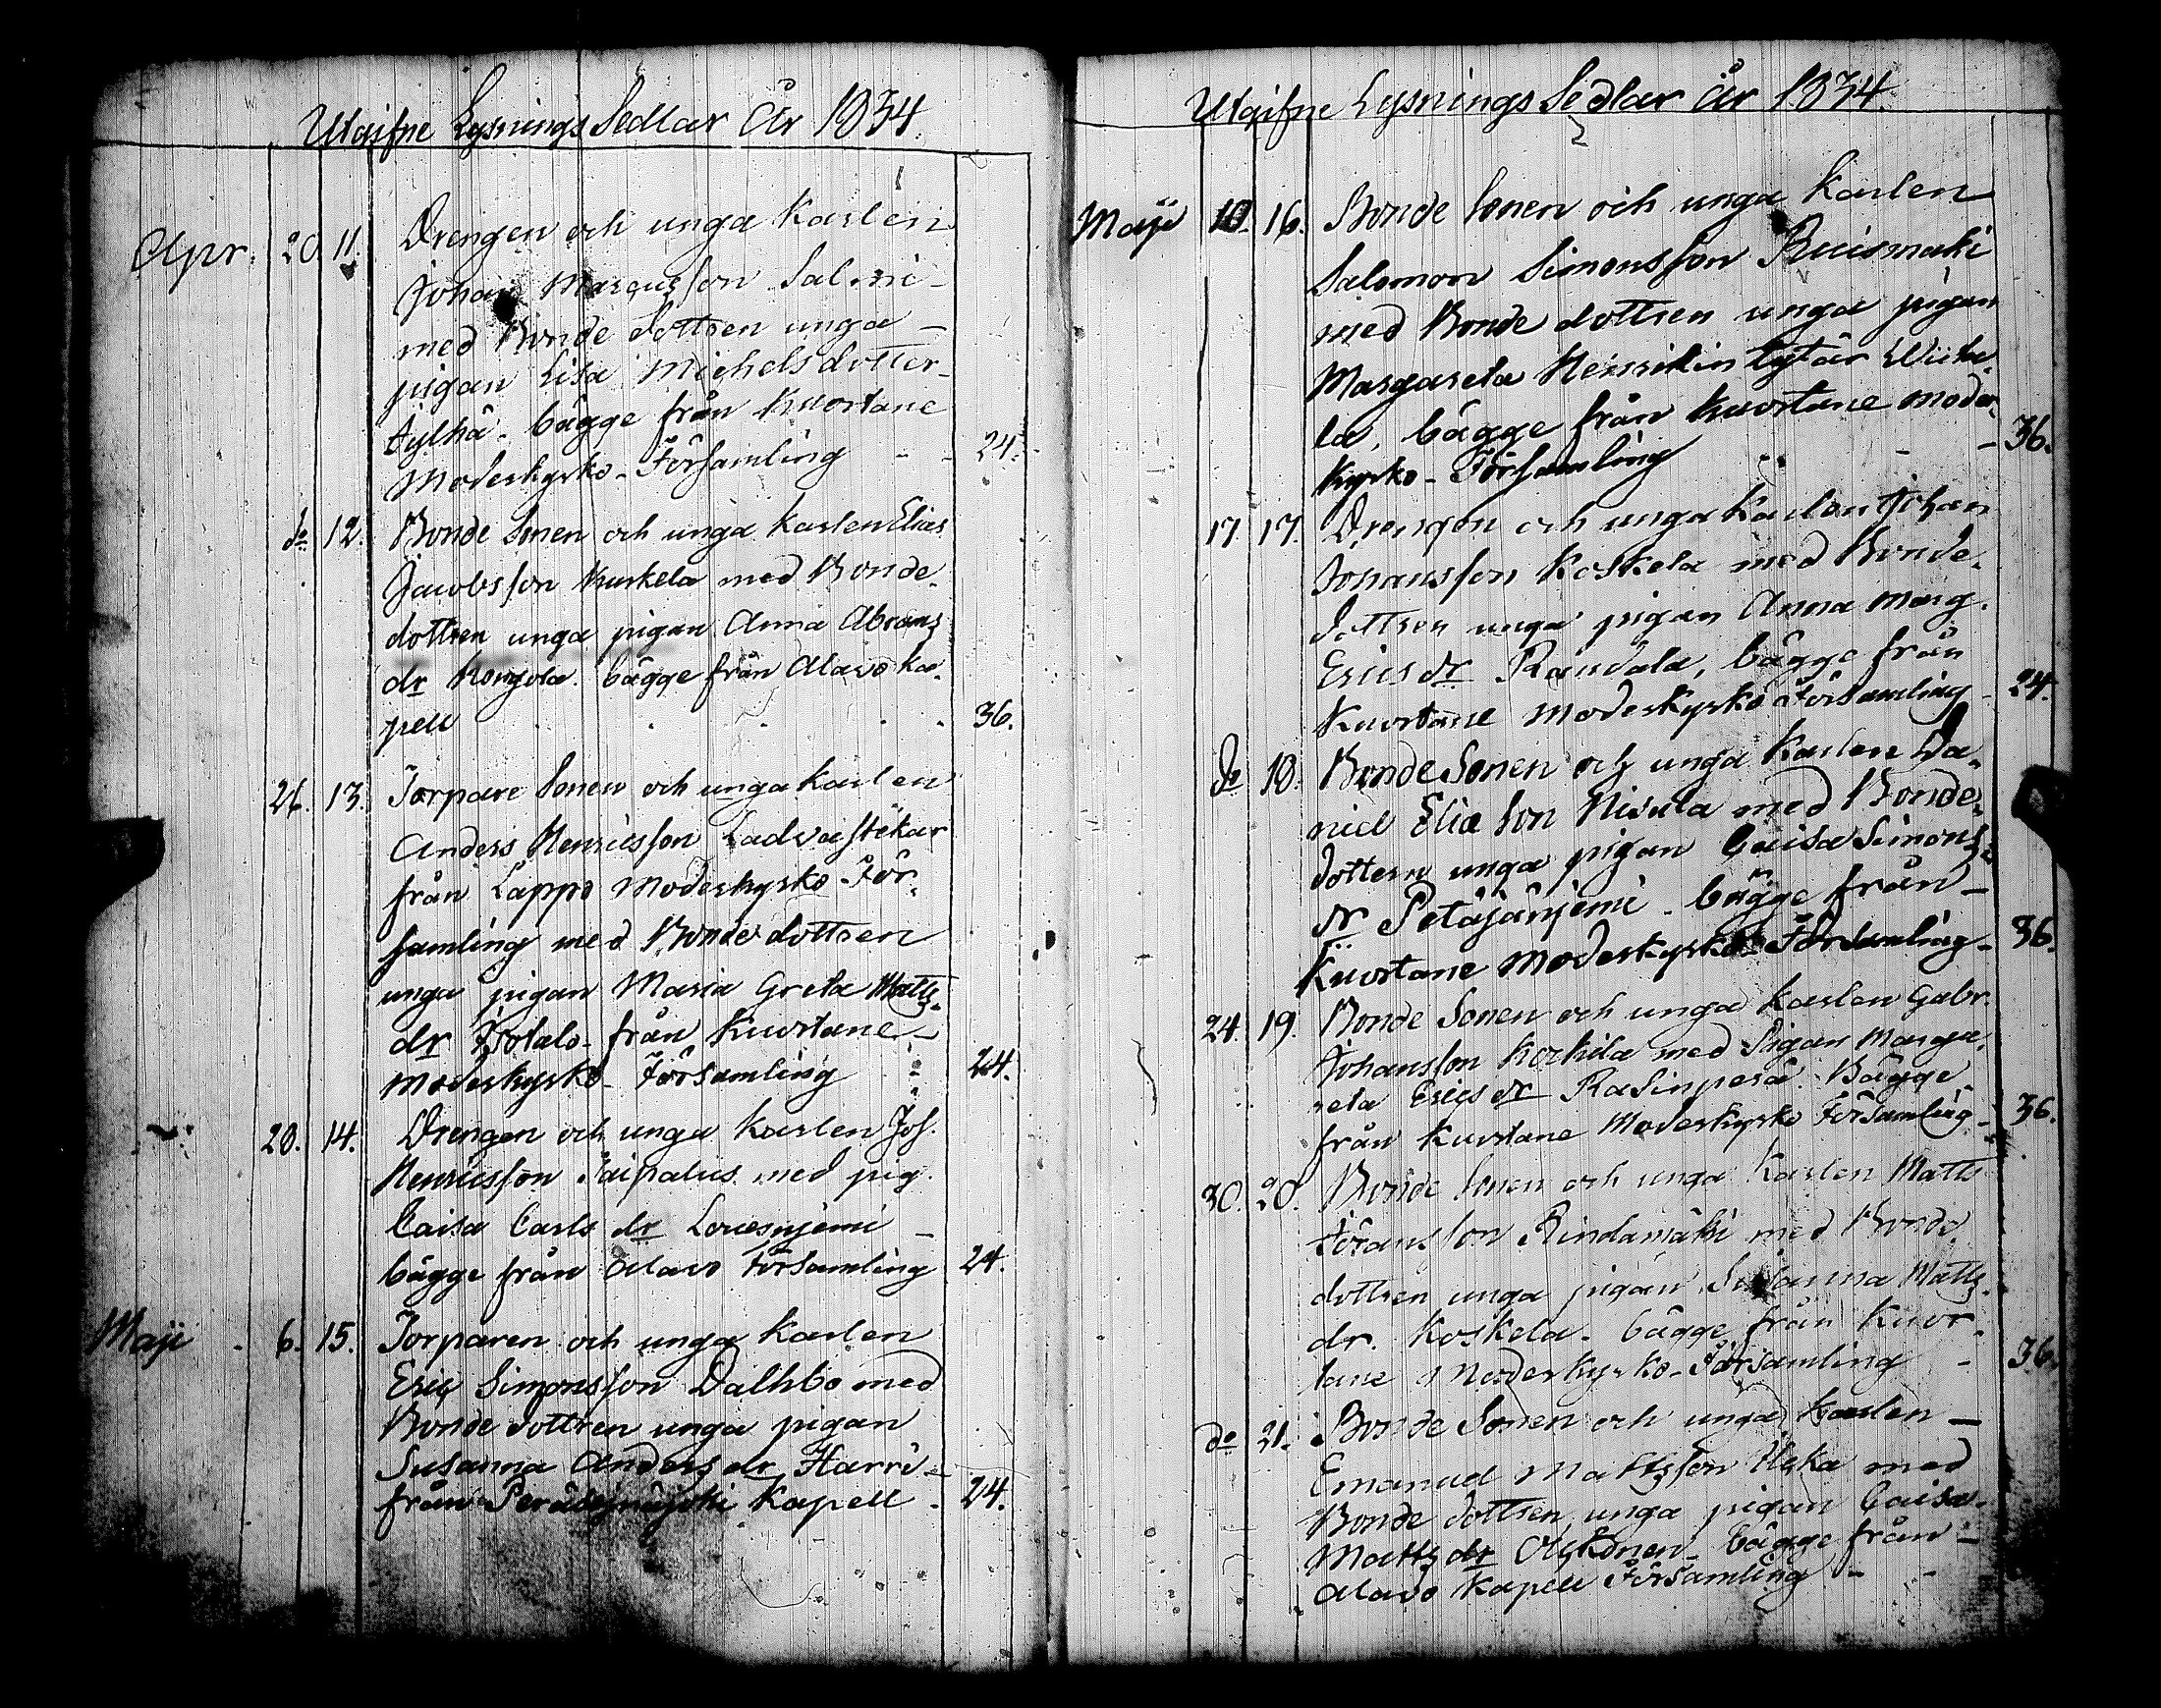 Utgifne Lysnings Sedlar År 1834.
Apr. 20. 11. Drengen och unga Karlen
Johan Marcusson Salmi-
med Bonde dottren unga -
pigan Lisa Michelsdotter-
Tylhä. bägge från Kuortane
Moderkyrko-Församling - - 24.
do 12. Bonde Sonen och unga Karlen Elias
Jacobsson Kuskela med Bonde-
dottren unga pigan Anna Abrams
dr Kongola. bägge från Alavo Ka-
pell 36.
26. 13. Torpare Sonen och unga Karlen
Anders Henricsson
från Lappo Moderkyrko-För-
samling med Bonde dottren
unga pigan Maria Greta Matts-
dr från Kuortane -
Moderkyrko-Församling 24.
28. 14. Drengen och unga Karlen Joh.
Henricsson Taipalus med pig.
Caisa Carls dr
bägge från Alavo Församling 24.
Maji 6. 15. Torparen och unga Karlen
Eric Simonsson Dalhbo med
Bonde dottren unga pigan
Susanna Anders dr Harri -
från Peräseinäjoki Kapell - 24.
Utgifne Lysnings Sedlar År 1834.
Maji 10. 16. Bonde Sonen och unga Karlen
Salomon Simonsson Ruismäki
med Bonde dottren unga pigan
Margareta Henrikin tytär
la, bägge från Kuortane Moder-
kyrko-Församling - 36.
17. 17. Drengen och unga Karlen Johan
Johansson Koskela med Bonde-
dottren unga pigan Anna Marg.
Erics dr Randala, bägge från
Kuortane Moderkyrko Församling - 24.
do 18. Bonde Sonen och unga Karlen Da-
niel Elia Son Nisula med Bonde-
dottern unga pigan Caisa Simons-
dr Petäjäniemi - bägge från -
Kuortane Moderkyrko Församling - 36.
24. 19. Bonde Sonen och unga Karlen Gabr.
Johansson Korkila med Pigan Marga-
reta Erics dr Rasinperä. Bägge
från Kuortane Moderkyrko Församling - 36.
30. 20. Bonde Sonen och unga Karlen Matts
Johansson Rindamäki med Bonde
dottren unga pigan Susanna Matts-
dr. Koskela. bägge från Kuor-
tane Moderkyrko-Församling - 36.
do 21. Bonde Sonen och unga Karlen -
Emanuel Mattsson Uska med
Bonde dottren unga pigan Caisa-
Matts dr bägge från -
Alavo Kapell Församling - -